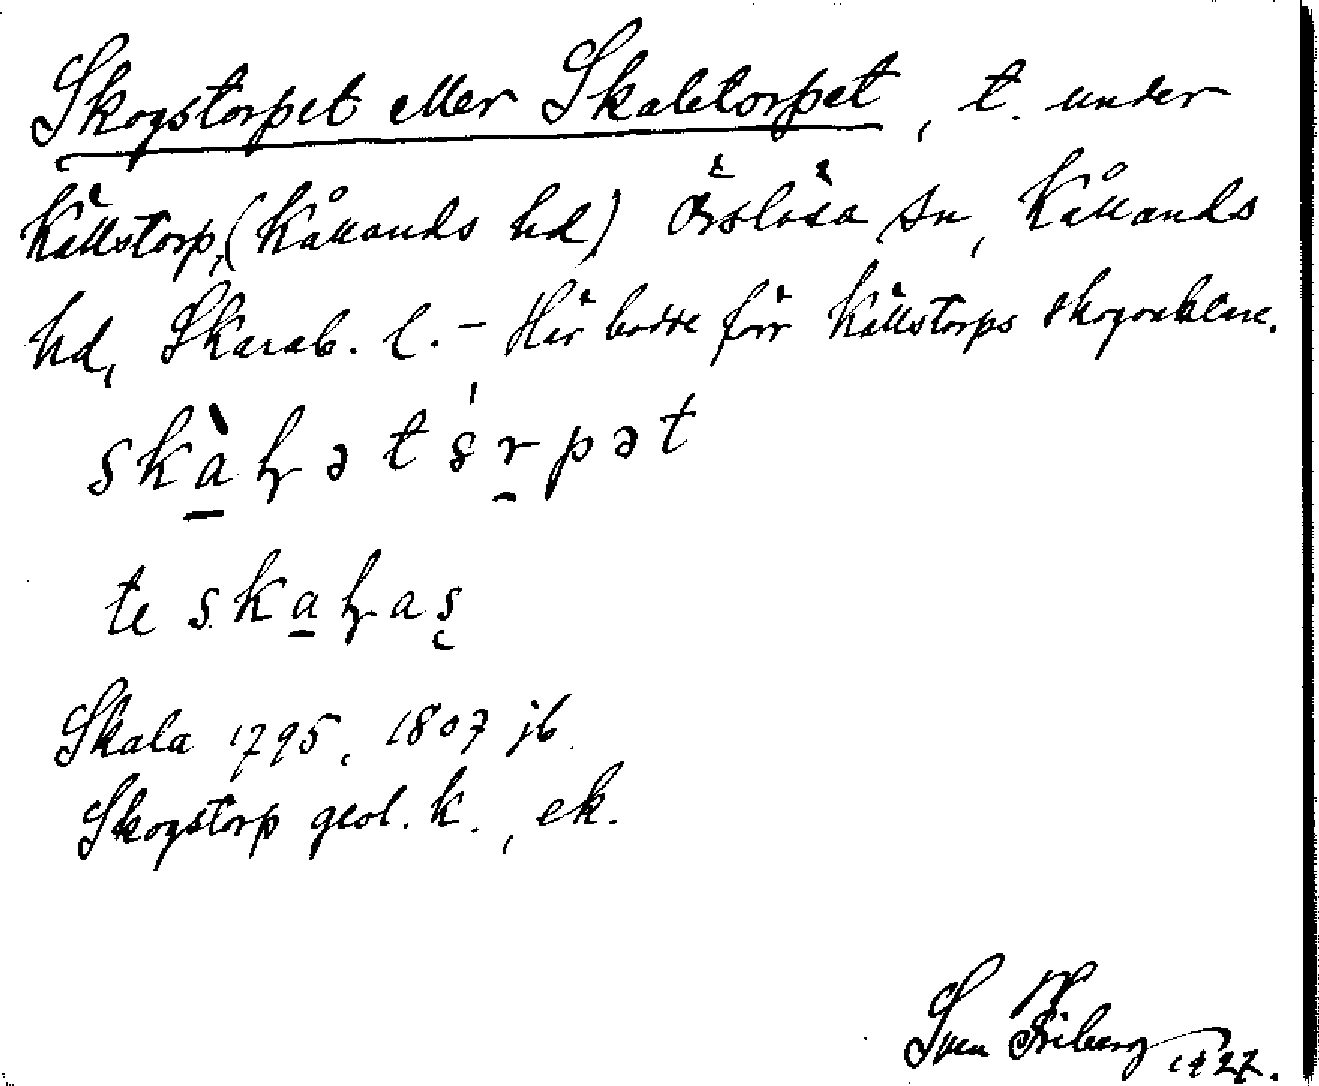 Skogstorpet eller Skaletorpet, t. under
Källstorp, (Kållands hd) Örslösa sn, Kållands
hd, Skarab. l. – Här bodde förr Källstorps skogvaktare.
te
Skala 1795, 1807 jb.
Skogstorp geol. k., ek.
Sven Friberg 1927.